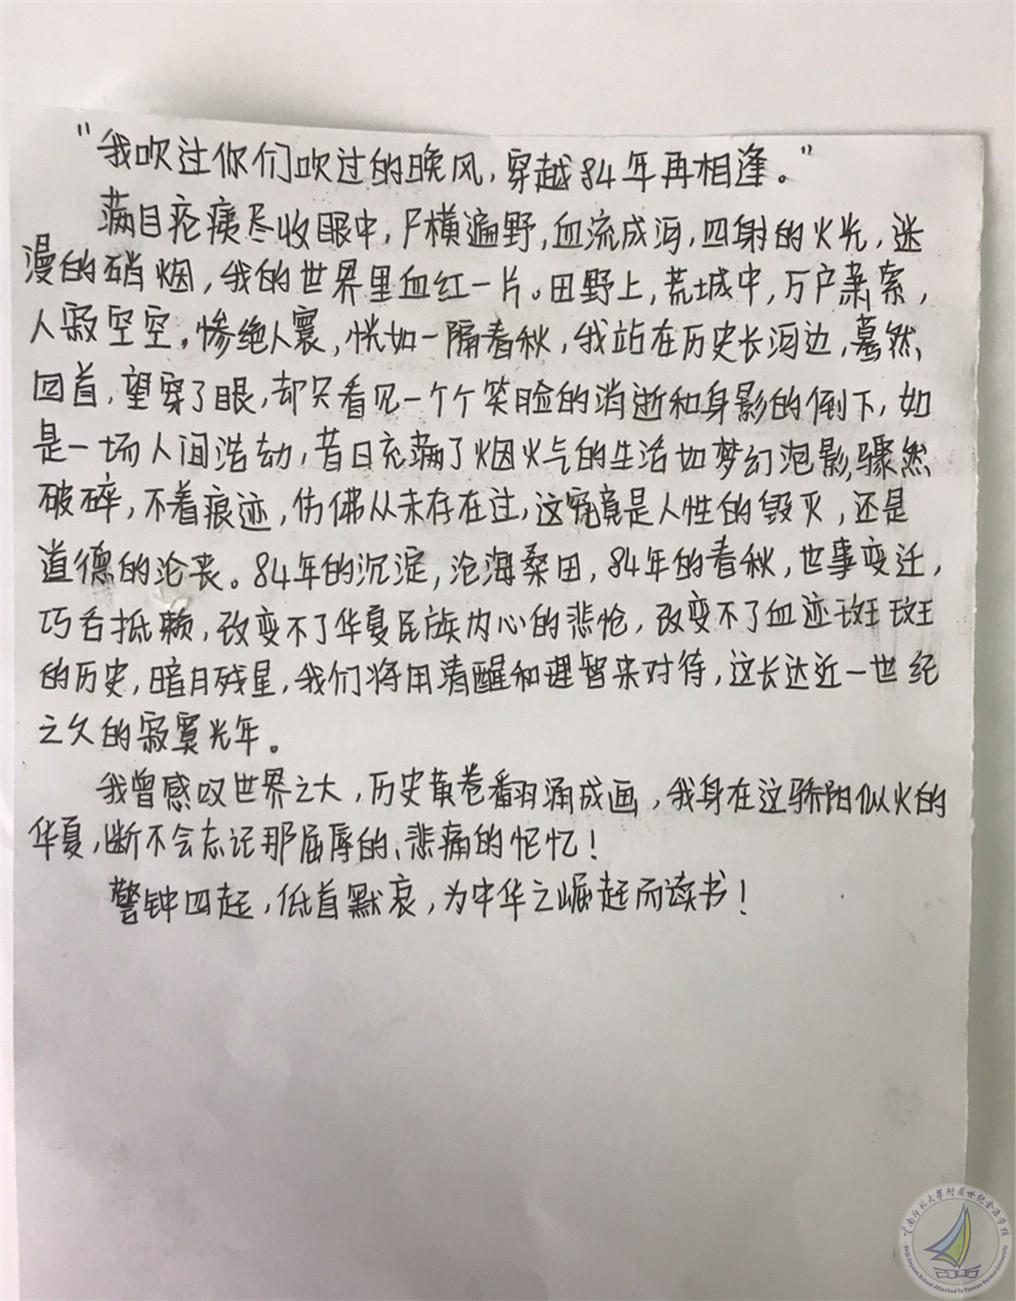 “我吹过你们吹过的晚风，穿越84年再相逢。”
满目疮痍尽收眼中，尸横遍野，血流成河，四射的火光，迷
漫的硝烟，我的世界里血红一片。田野上，荒城中，万户萧索，
人寂空空。惨绝人寰，恍如一隔春秋，我站在历史长河边，蓦然
回首，望穿了眼，却只看见一个个笑脸的消逝和身影的倒下，如
是一场人间浩劫，昔日充满了烟火气的生活如梦幻泡影，骤然
破碎，不着痕迹，仿佛从未存在过，这究竟是人性的毁灭，还是
道德的沦丧。84年的沉淀，沧海桑田，84年的春秋，世事变迁，
巧舌抵赖，改变不了华夏民族内心的悲怆，改变不了血迹斑斑
的历史，暗月残星，我们将用清醒和理智来对待，这长达近一世纪
之久的寂寞光年。
我曾感叹世界之大，历史黄卷翻涌成画，我身在这骄阳似火的
华夏，断不会忘记那屈辱的、悲痛的记忆！
警钟四起，低首默哀，为中华之崛起而读书！
云南师范大学附属世纪金源学校
Shiji Jinyuan School Attached To Yunnan Normal University